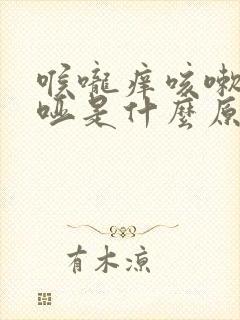 喉嚨痒咳嗽
哑是什麼原
有木凉